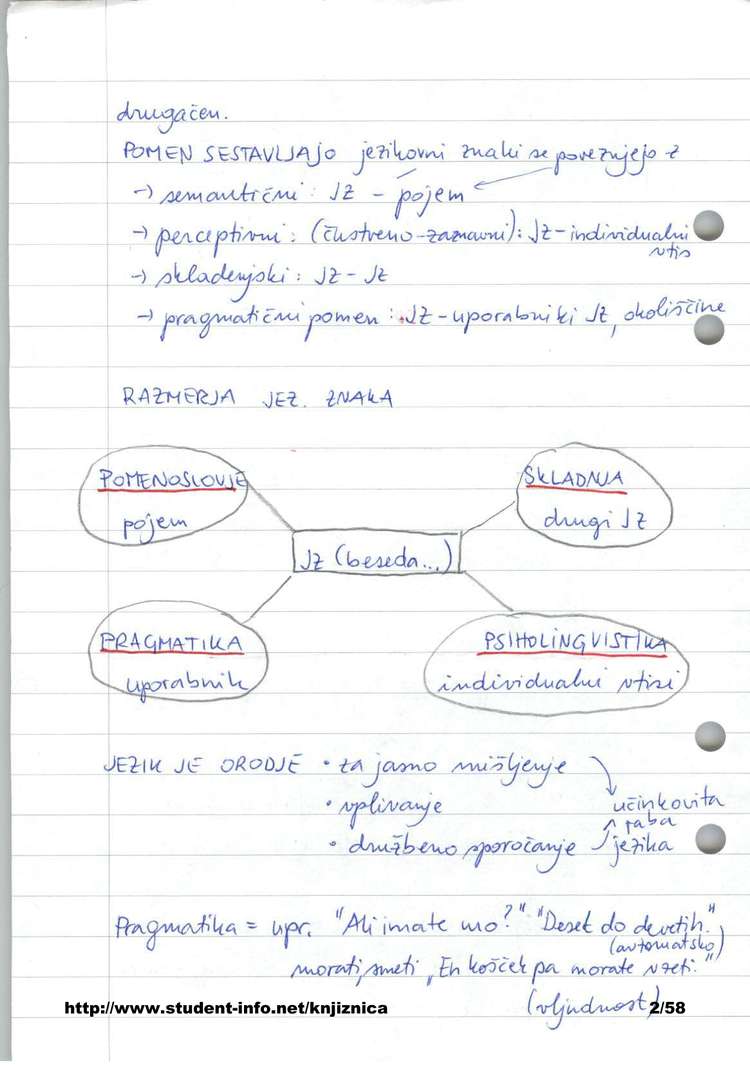 drugačen.
POMEN SESTAVLJAJO jezikovni znaki se povezujejo z
→ semantični: JZ - pojem
→ perceptivni: (čustveno-zaznavni): JZ-individualni
vtis
→ skladenjski: JZ - JZ
→ pragmatični pomen: JZ - uporabniki JZ, okoliščine
RAZMERJA JEZ. ZNAKA
POMENOSLOVJE
pojem
SKLADNJA
drugi JZ
JZ (beseda...)
PRAGMATIKA
uporabnik
PSIHOLINGVISTIKA
individualni vtisi
JEZIK JE ORODJE • za jasno mišljenje
• vplivanje
učinkovita
raba
• družbeno sporočanje
jezika
Pragmatika = npr. "Ali imate uro?" "Deset do devetih."
(avtomatsko)
morati, smeti „En košček pa morate vzeti."
(vljudnost)
http://www.student-info.net/knjiznica 2/58